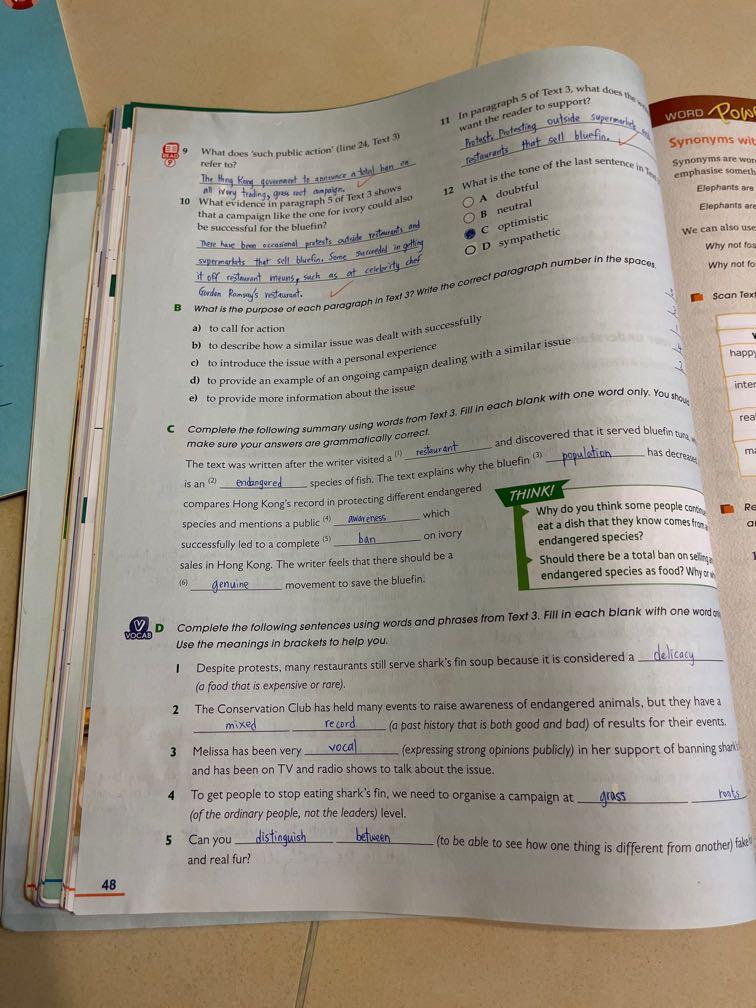 9 What does 'such public action' (line 24, Text 3)
refer to?
The Hong Kong government to announce a total ban on
all ivory trading, grass root campaign.
10 What evidence in paragraph 5 of Text 3 shows
that a campaign like the one for ivory could also
be successful for the bluefin?
There have been occasional protests outside restaurants and
supermarkets that sell bluefin. Some succeeded in getting
it off restaurant menus, such as at celebrity chef
Gordon Ramsay's restaurant.
11 In paragraph 5 of Text 3, what does the
want the reader to support?
Protest. Protesting outside supermarkets and
restaurants that sell bluefin.
12 What is the tone of the last sentence in
A doubtful
B neutral
C optimistic
D sympathetic
B What is the purpose of each paragraph in Text 3? Write the correct paragraph number in the spaces.
a) to call for action
b) to describe how a similar issue was dealt with successfully
c) to introduce the issue with a personal experience
d) to provide an example of an ongoing campaign dealing with a similar issue
e) to provide more information about the issue
C Complete the following summary using words from Text 3. Fill in each blank with one word only. You should
make sure your answers are grammatically correct.
The text was written after the writer visited a (1) restaurant and discovered that it served bluefin tuna,
is an (2) endangered species of fish. The text explains why the bluefin (3) population has decreased
compares Hong Kong's record in protecting different endangered
species and mentions a public (4) awareness which
successfully led to a complete (5) ban on ivory
sales in Hong Kong. The writer feels that there should be a
(6) genuine movement to save the bluefin.
THINK!
Why do you think some people continue
eat a dish that they know comes from
endangered species?
Should there be a total ban on selling
endangered species as food? Why or why
VOCAB
D Complete the following sentences using words and phrases from Text 3. Fill in each blank with one word only
Use the meanings in brackets to help you.
1 Despite protests, many restaurants still serve shark's fin soup because it is considered a delicacy
(a food that is expensive or rare).
2 The Conservation Club has held many events to raise awareness of endangered animals, but they have a
mixed record (a past history that is both good and bad) of results for their events.
3 Melissa has been very vocal (expressing strong opinions publicly) in her support of banning shark's
and has been on TV and radio shows to talk about the issue.
4 To get people to stop eating shark's fin, we need to organise a campaign at grass roots
(of the ordinary people, not the leaders) level.
5 Can you distinguish between (to be able to see how one thing is different from another) fake
and real fur?
48
WORD Pow
Synonyms wit
Synonyms are wor
emphasise someth
Elephants are
Elephants are
We can also use
Why not fos
Why not fo
Scan Text
happy
inter
rea
Re